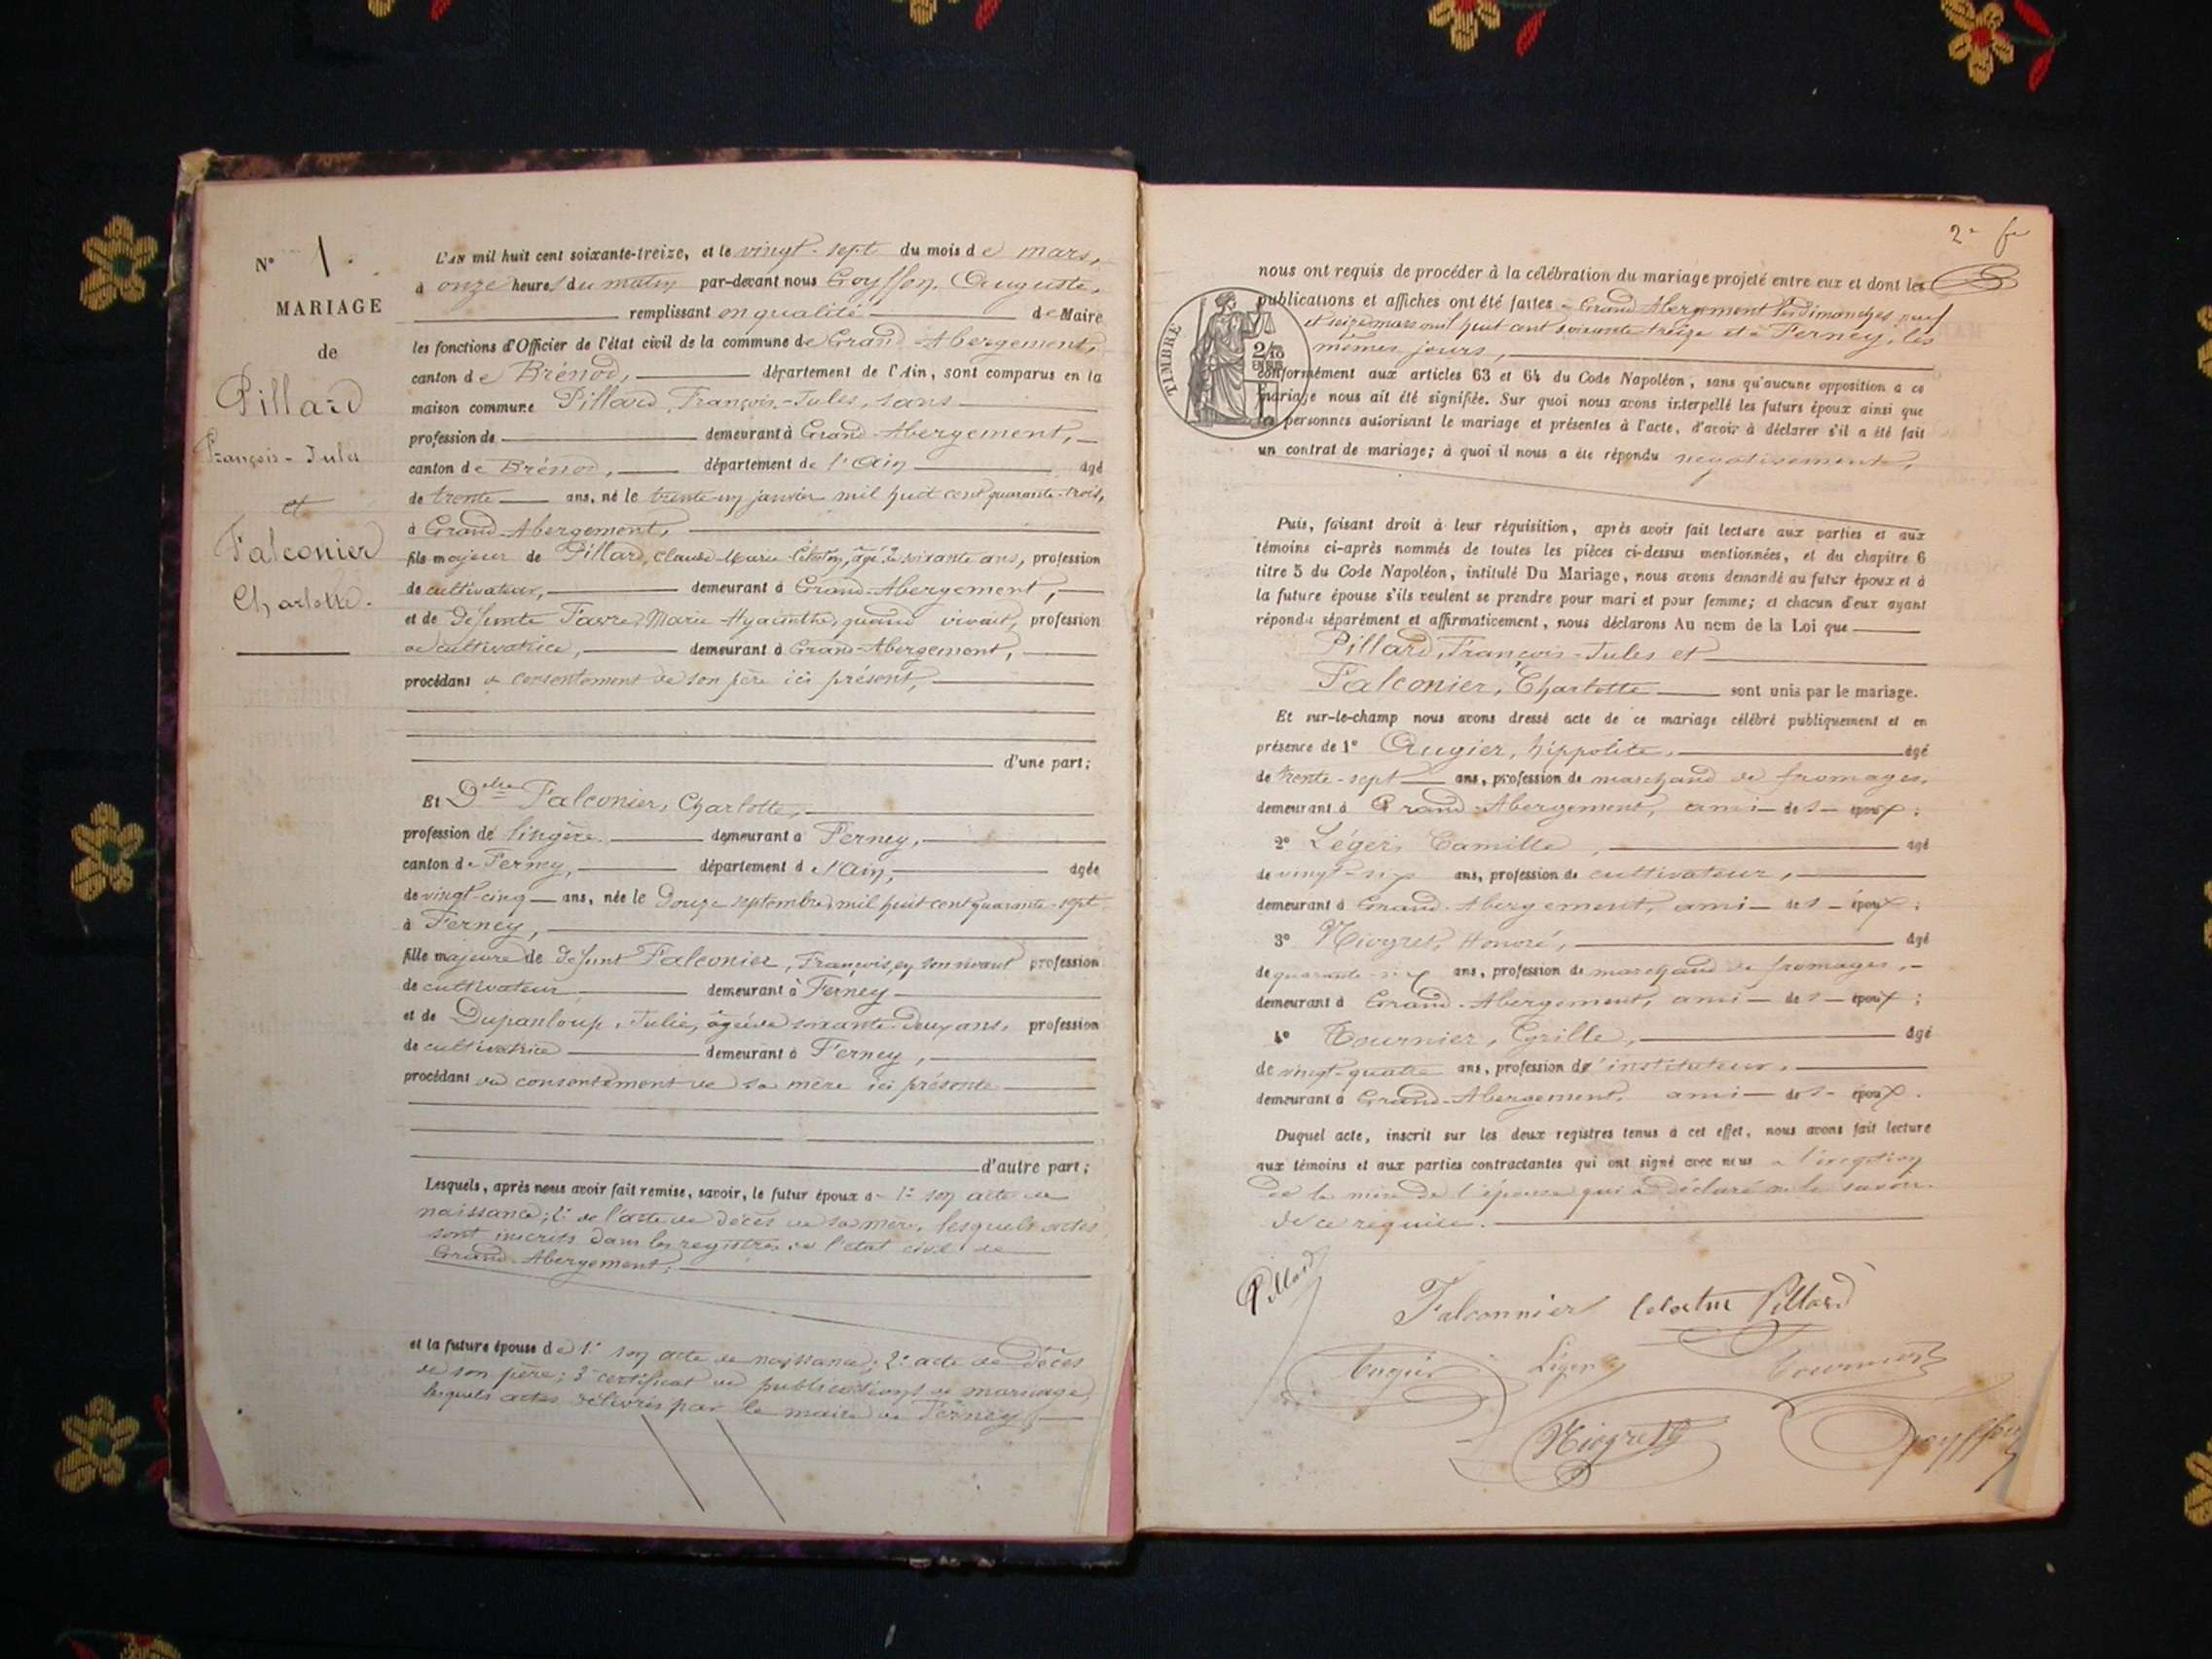 N° 1.
MARIAGE
de
Pillard
François-Jules
et
Falconier
Charlotte.
L'AN mil huit cent soixante-treize, et le vingt-sept du mois de mars,
à onze heures du matin par-devant nous Goyffon, Auguste,
remplissant en qualité de Maire
les fonctions d'Officier de l'état civil de la commune de Grand-Abergement,
canton de Brénod, département de l'Ain, sont comparus en la
maison commune Pillard, François-Jules, sans
profession de demeurant à Grand-Abergement,
canton de Brénod, département de l'Ain âgé
de trente ans, né le trente-un janvier mil huit cent quarante-trois,
à Grand-Abergement,
fils majeur de Pillard, Claude-Marie-Célestin, âgé de soixante ans, profession
de cultivateur, demeurant à Grand-Abergement,
et de défunte Favre, Marie-Hyacinthe, quand vivait, profession
de cultivatrice, demeurant à Grand-Abergement,
procédant du consentement de son père ici présent,
d'une part;
Et Delle Falconier, Charlotte,
profession de lingère demeurant à Ferney,
canton de Ferney, département de l'Ain, âgée
de vingt-cinq ans, née le douze septembre mil huit cent quarante-sept
à Ferney,
fille majeure de défunt Falconier, François, en son vivant profession
de cultivateur demeurant à Ferney
et de Dupanloup, Julie, âgée de soixante-deux ans, profession
de cultivatrice demeurant à Ferney,
procédant du consentement de sa mère ici présente
d'autre part;
Lesquels, après nous avoir fait remise, savoir, le futur époux de 1° son acte de
naissance; 2° de l'acte de décès de sa mère, lesquels actes
sont inscrits dans les registres de l'état civil de
Grand-Abergement;
et la future épouse de 1° son acte de naissance; 2° acte de décès
de son père; 3° certificat de publications de mariage,
lesquels actes délivrés par le maire de Ferney,
2e
nous ont requis de procéder à la célébration du mariage projeté entre eux et dont les
publications et affiches ont été faites à Grand-Abergement les dimanches neuf
et seize mars mil huit cent soixante-treize et à Ferney, les
mêmes jours,
TIMBRE
2/10
conformément aux articles 63 et 64 du Code Napoléon, sans qu'aucune opposition à ce
mariage nous ait été signifiée. Sur quoi nous avons interpellé les futurs époux ainsi que
les personnes autorisant le mariage et présentes à l'acte, d'avoir à déclarer s'il a été fait
un contrat de mariage; à quoi il nous a été répondu négativement,
Puis, faisant droit à leur réquisition, après avoir fait lecture aux parties et aux
témoins ci-après nommés de toutes les pièces ci-dessus mentionnées, et du chapitre 6
titre 5 du Code Napoléon, intitulé Du Mariage, nous avons demandé au futur époux et à
la future épouse s'ils veulent se prendre pour mari et pour femme; et chacun d'eux ayant
répondu séparément et affirmativement, nous déclarons Au nom de la Loi que
Pillard, François-Jules et
Falconier, Charlotte sont unis par le mariage.
Et sur-le-champ nous avons dressé acte de ce mariage célébré publiquement et en
présence de 1° Augier, Hippolite, âgé
de trente-sept ans, profession de marchand de fromages,
demeurant à Grand-Abergement, ami des époux;
2° Léger, Camille, âgé
de vingt-six ans, profession de cultivateur,
demeurant à Grand-Abergement, ami des époux;
3° Niogret, Honoré, âgé
de quarante-six ans, profession de marchand de fromages,
demeurant à Grand-Abergement, ami des époux;
4° Tournier, Cyrille, âgé
de vingt-quatre ans, profession d'instituteur,
demeurant à Grand-Abergement, ami des époux.
Duquel acte, inscrit sur les deux registres tenus à cet effet, nous avons fait lecture
aux témoins et aux parties contractantes qui ont signé avec nous à l'exception
de la mère de l'épouse qui a déclaré ne le savoir
de ce requise.
Pillard
Falconnier Celestin Pillard
Augier Léger Tournier
Niogret Goyffon